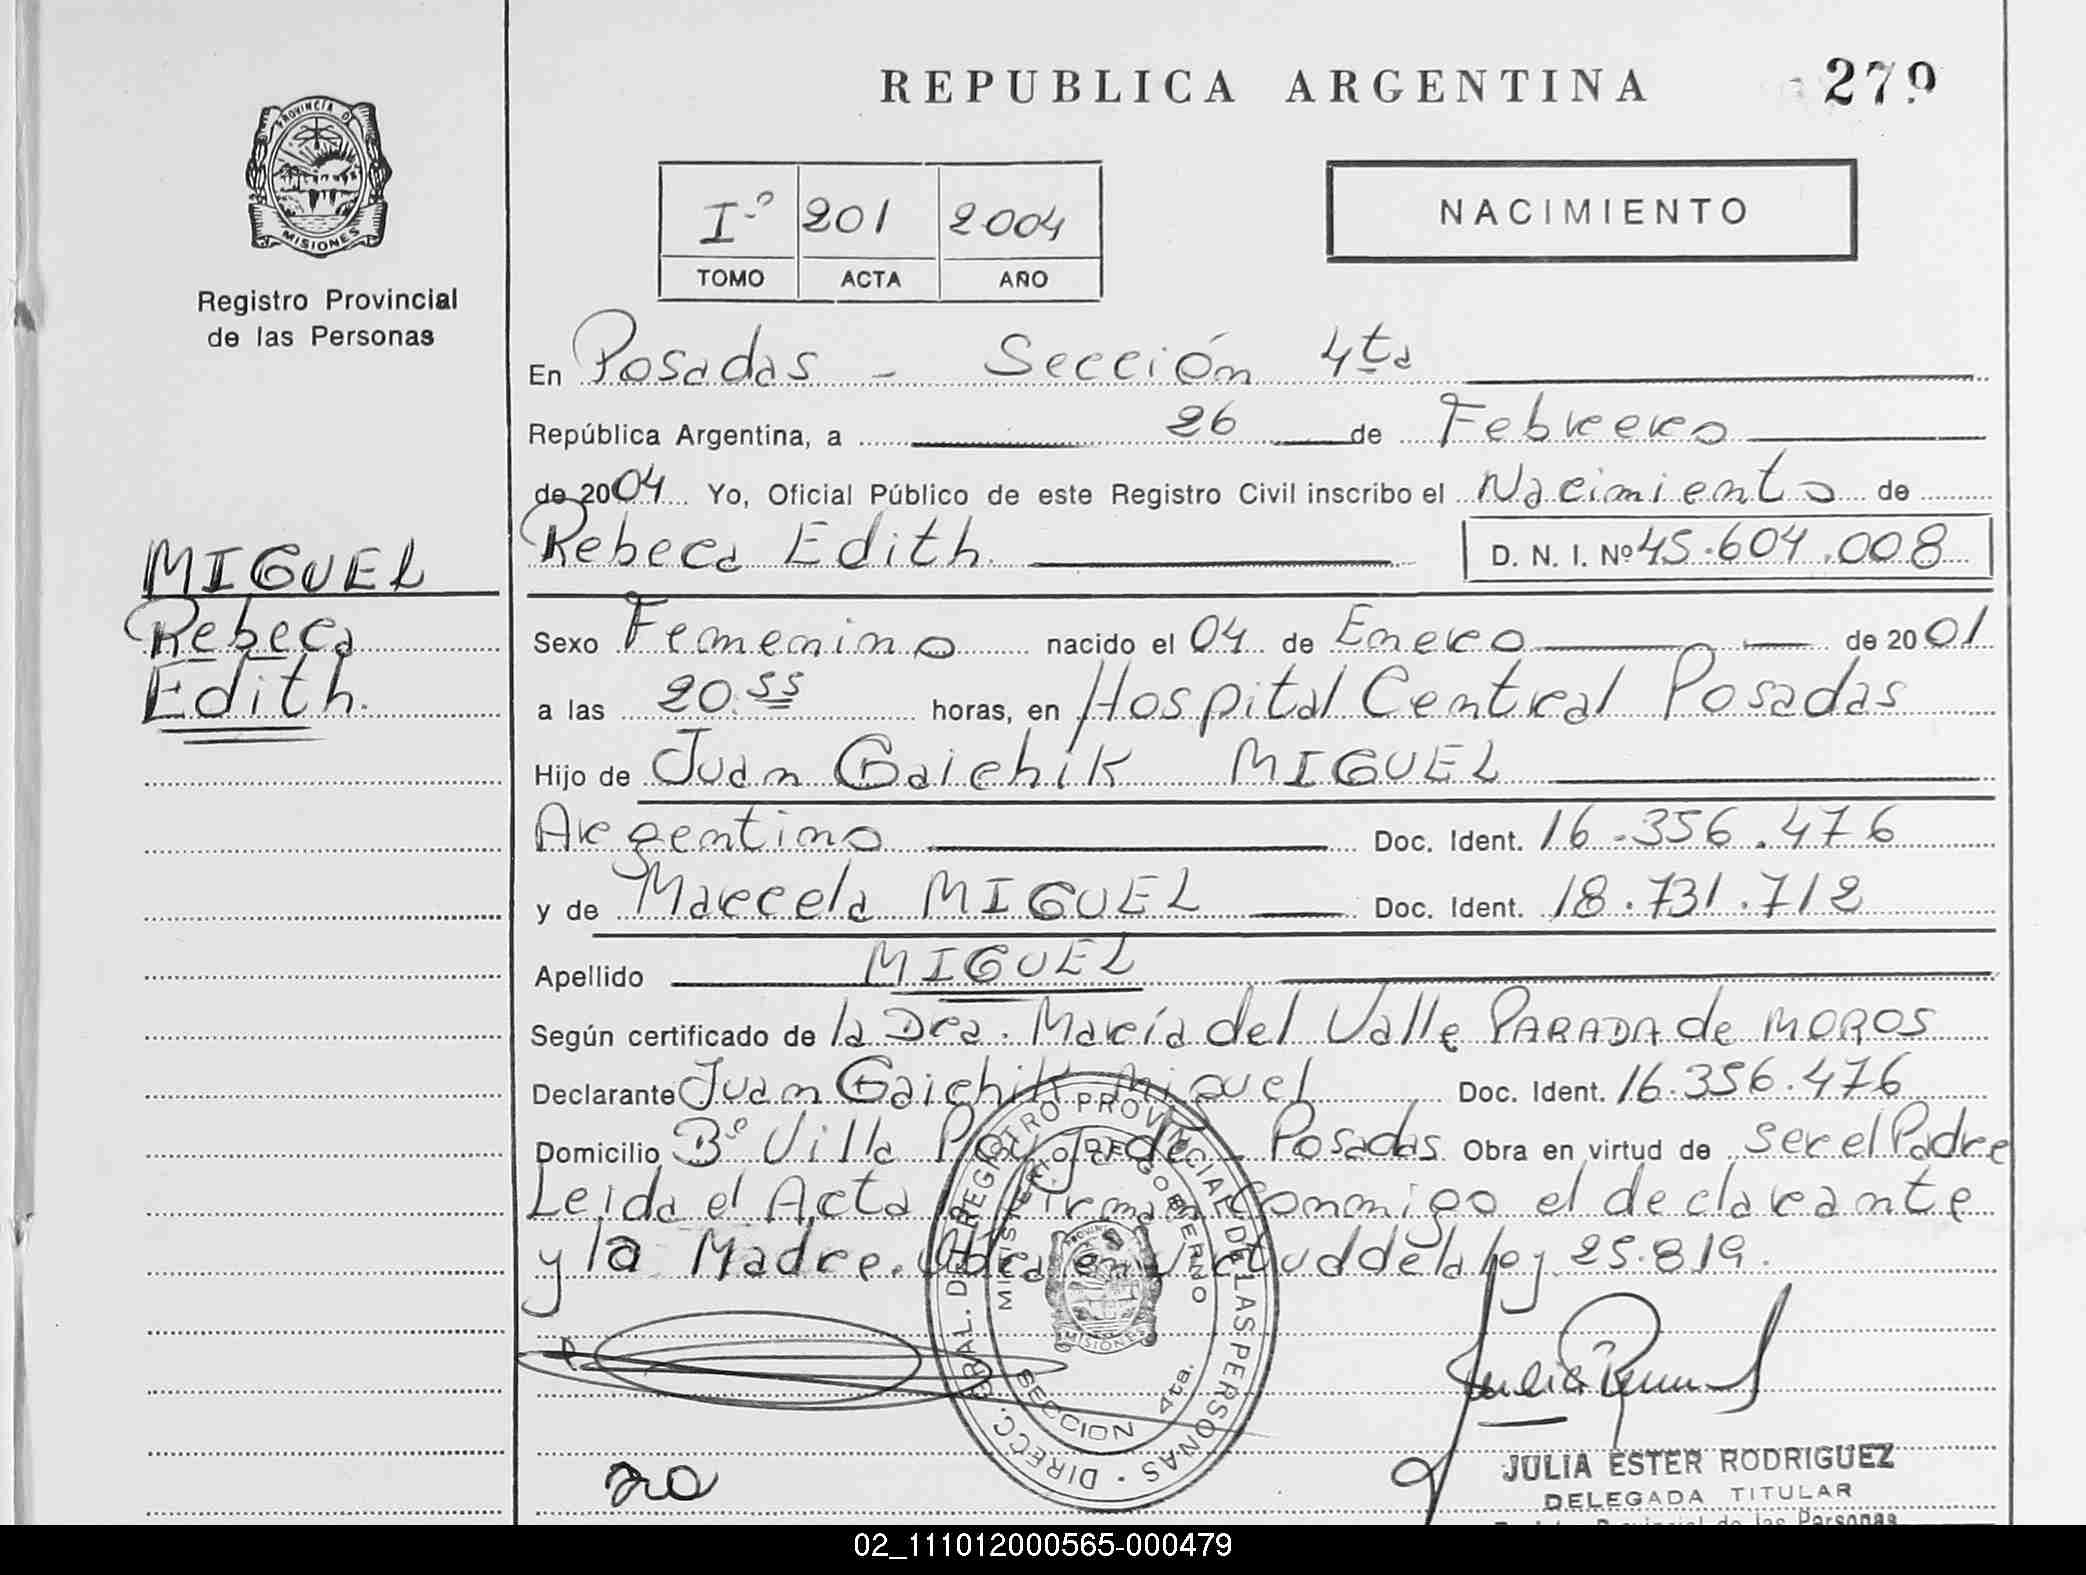 REPUBLICA ARGENTINA
279
PROVINCIA D
MISIONES
Registro Provincial
de las Personas
Iº 201 2004
TOMO ACTA AÑO
NACIMIENTO
En Posadas - Sección 4ta
República Argentina, a 26 de Febrero
de 2004 Yo, Oficial Público de este Registro Civil inscribo el Nacimiento de
Rebeca Edith. D. N. I. Nº 45.604.008
MIGUEL
Rebeca
Edith.
Sexo Femenino nacido el 04 de Enero de 2001
a las 20.55 horas, en Hospital Central Posadas
Hijo de Juan Gaichik MIGUEL
Argentino Doc. Ident. 16.356.476
y de Marcela MIGUEL Doc. Ident. 18.731.712
Apellido MIGUEL
Según certificado de la Dra. María del Valle PARADA de MOROS
Declarante Juan Gaichik Miguel Doc. Ident. 16.356.476
Domicilio Bº Villa Posadas Obra en virtud de ser el Padre
Leida el Acta Firman Conmigo el declarante
y la Madre. Obra en Virtud de la ley 25.819.
DIRECC. GRAL. DEL REGISTRO PROVINCIAL DE LAS PERSONAS
MINISTERIO DE GOBIERNO
MISIONES
SECCION 4ta.
JULIA ESTER RODRIGUEZ
DELEGADA TITULAR
Registro Provincial de las Personas
02_111012000565-000479